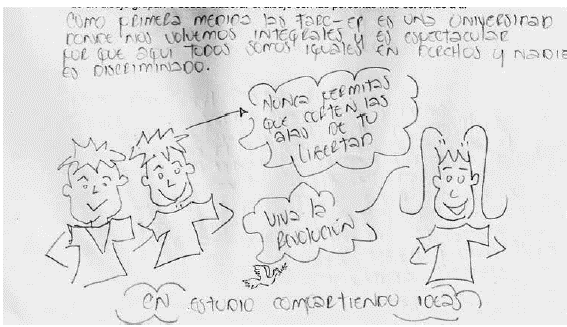 COMO PRIMERA MEDIDA LAS FARC-EP ES UNA UNIVERSIDAD
DONDE NOS VOLVEMOS INTEGRALES Y ES ESPECTACULAR
POR QUE AQUI TODOS SOMOS IGUALES EN DERCHOS Y NADIE
ES DISCRIMINADO.
NUNCA PERMITAS
QUE CORTEN LAS
ALAS DE TU
LIBERTAD
VIVA LA
REVOLUCIÓN
EN ESTUDIO COMPARTIENDO IDEAS